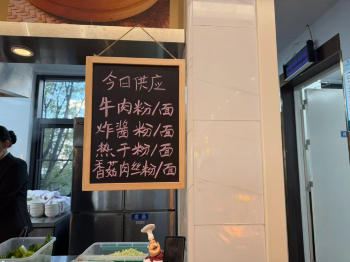 今日供应
牛肉粉/面
炸酱粉/面
热干粉/面
香菇肉丝粉/面